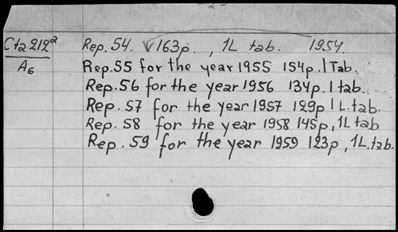 Cta212² Rep. 54. √163p., 1L tab. 1954.
A6 Rep.55 for the year 1955 154p. 1 Tab.
Rep. 56 for the year 1956 134p. 1 tab.
Rep. 57 for the year 1957 129p 1 L. tab.
Rep. 58 for the year 1958 145p, 1L tab
Rep. 59 for the year 1959 123p, 1L.tab.